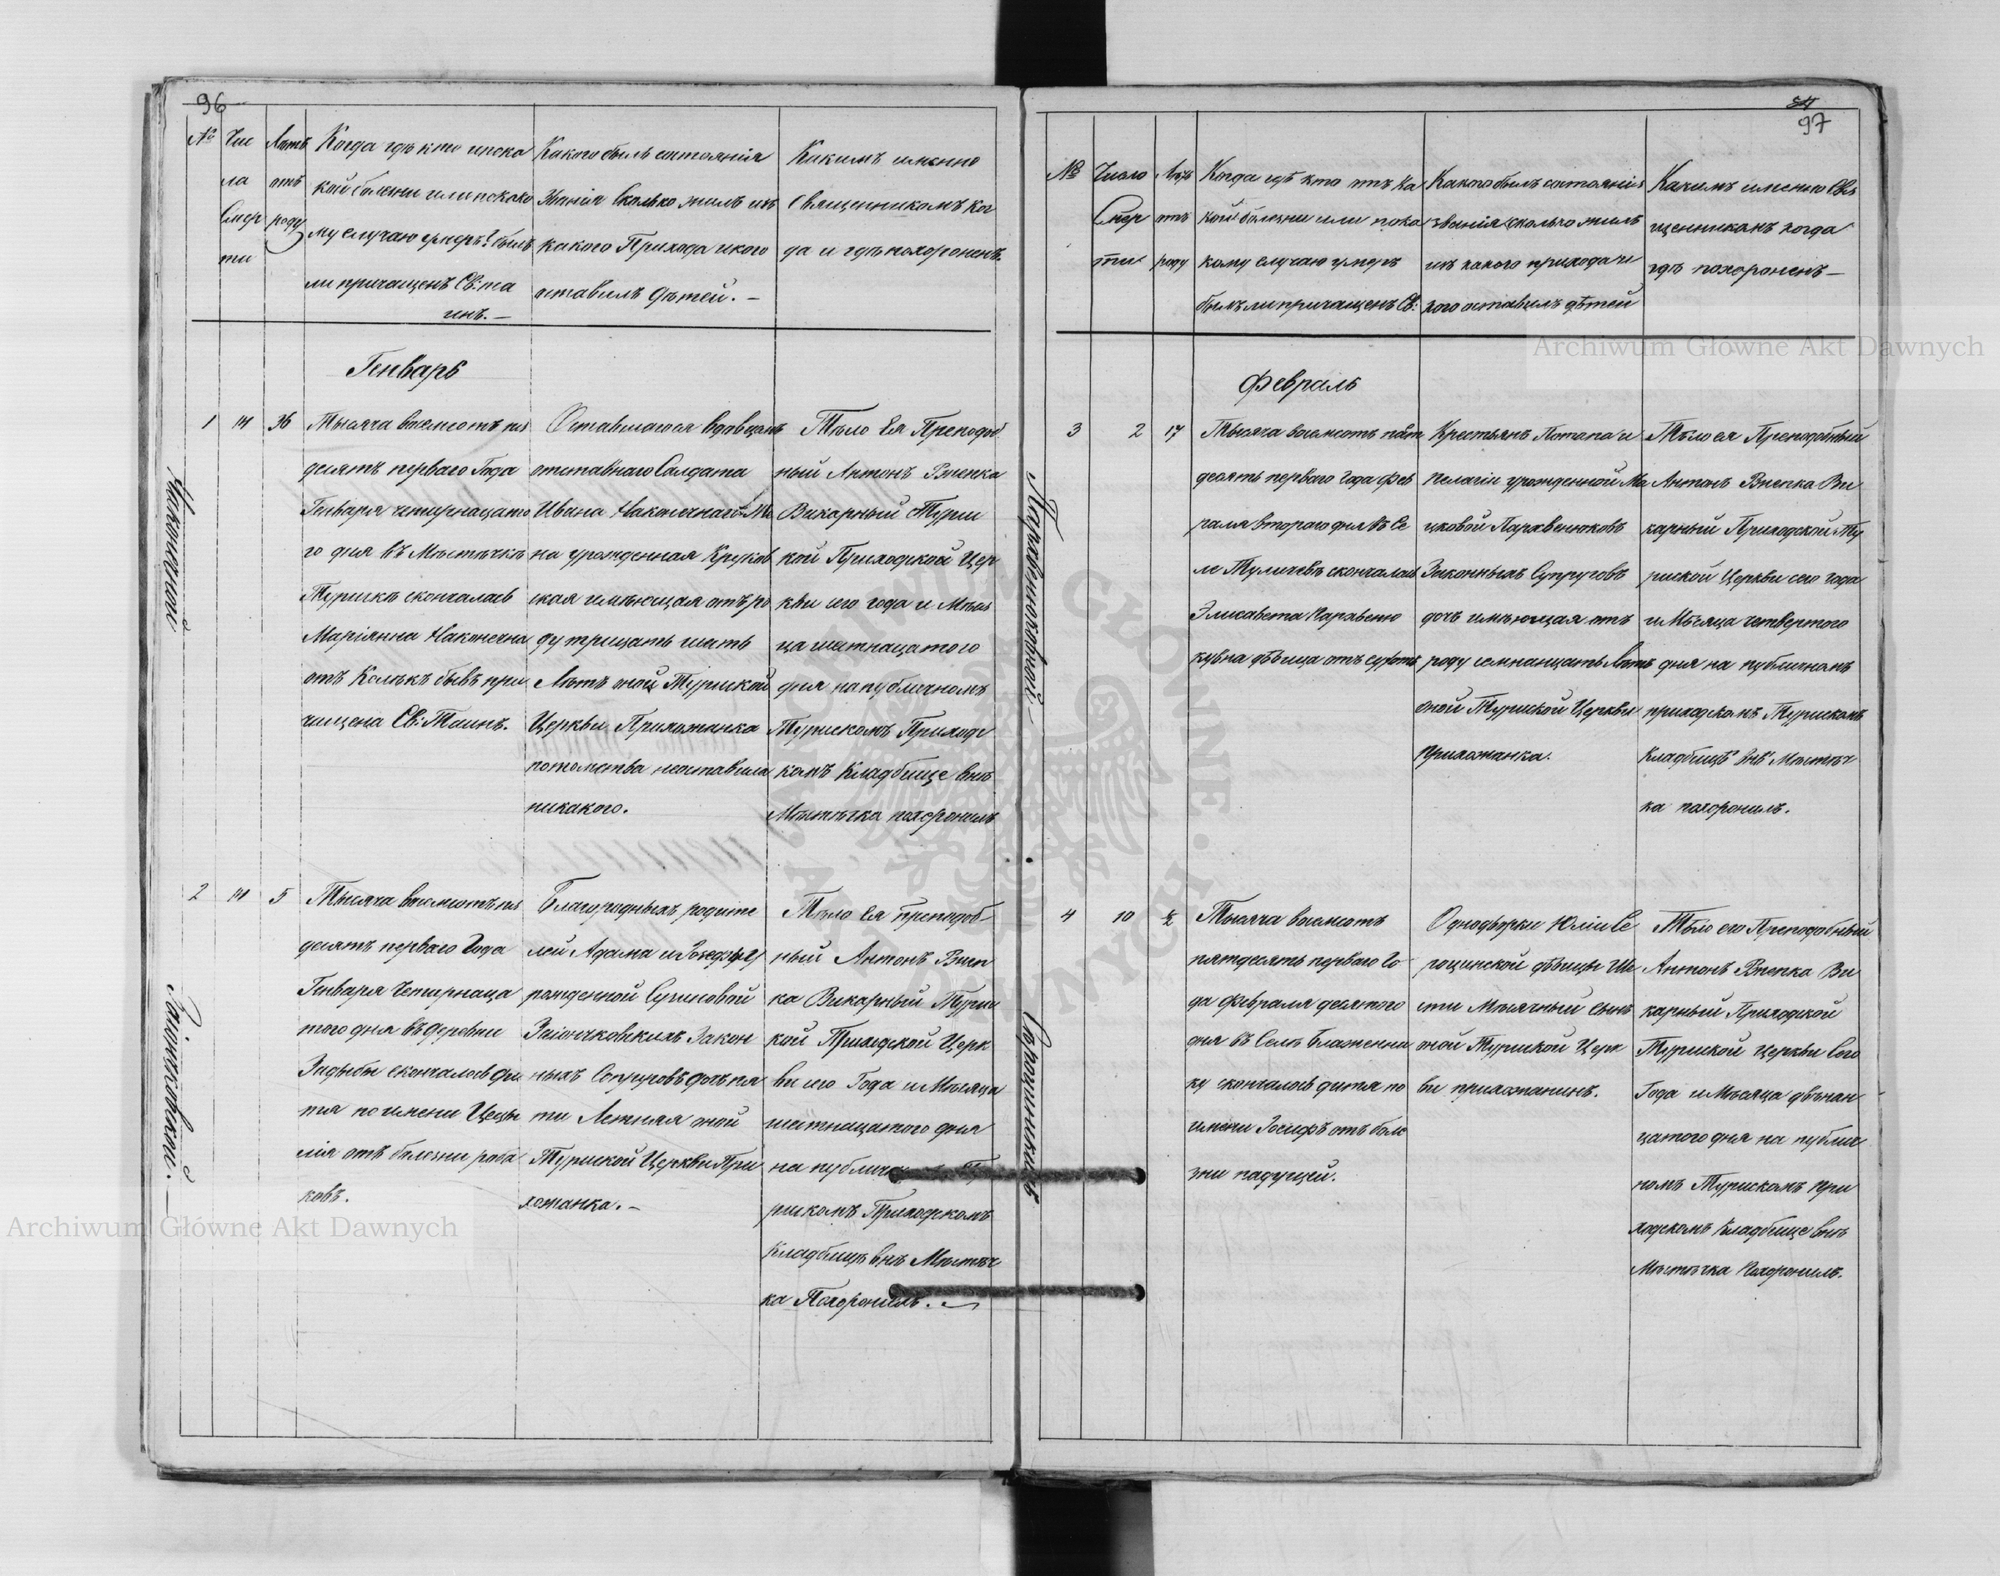 96
№
Чис
ла
Смер
ти
Лѣтъ
отъ
роду
Когда гдѣ кто и отъ ка
кой болезни или по како
му случаю умеръ? былъ
ли причащенъ Св: та
инъ. —
Какого былъ состоянія
Званія сколько жилъ изъ
какого Прихода и кого
оставилъ дѣтей. —
Какимъ именно
Священникомъ ког
да и гдѣ похороненъ.
Генварь
Наконечный
1
14
36
Тысяча восемсотъ пя
десятъ перваго Года
Генваря четырнацато
го дня въ Мѣстечкѣ
Турискѣ скончалась
Маріянна Наконечна
отъ Колькъ бывъ при
чащена Св: Таинъ.
Оставшагося вдовцомъ
отставнаго Солдата
Ивана Наконечнаго Же
на урожденная Круков
ская имѣющая отъ ро
ду трицать шать
Лѣтъ оной Туриской
Церкви Прихожанка
потомства неоставила
никакого.
Тѣло Ея Преподоб
ный Антонъ Рпепка
Викарный Тури
кой Приходской Цер
кви его года и Мѣся
ца шатнацатого
дня на публичномъ
Турискомъ Приход
комъ Кладбище внѣ
Мѣстечка похоронилъ
Заіончковскій. —
2
14
5
Тысяча восемсотъ пя
десятъ перваго Года
Генваря Четырнаца
того дня въ деревни
Задыбы скончалась ди
тя по имени Цецы
лія отъ болезни роба
ковъ.
Благородныхъ родите
лей Адама и Іозефы у
рожденной Сучиновой
Заіончковскихъ Закон
ныхъ Супруговъ дочъ пя
ти Летняя оной
Туриской Церкви При
хожанка. —
Тѣло Ея Преподоб-
ный Антонъ Рпеп
ка Викарный Турис
кой Приходской Церк
ви его Года и Мѣсяца
шатнацатого дня
на публичн
рискомъ Приходскомъ
Кладбищѣ внѣ Мѣстеч
ка Похоронилъ. —
97
№
Число
Смер
ти
Лѣтъ
отъ
роду
Когда гдѣ кто отъ ка
кой болезни или пока
кому случаю умеръ
былъ ли причащенъ Св:
Какого былъ состоянія
званія сколько жилъ
изъ какого прихода и
кого оставилъ дѣтей
Какимъ именно Свя
щенникомъ когда
гдѣ похороненъ —
Февраль
3
2
17
Тысяча восемсотъ пят
десятъ перваго года фев
раля втораго дня въ Се
ле Туличевѣ скончалась
Элисавета Пархвеню
ковна дѣвица отъ сухотъ
Крестьянъ Потапа и
Пелагіи урожденной Ма
цковой Пархвенюковъ
Законныхъ Супруговъ
дочъ имѣющая отъ
роду семнацать Лѣтъ
оной Туриской Церкви
прихожанка.
Тѣло ея Преподобный
Антонъ Рпепка Ви
карный Приходской Ту
риской Церкви сего года
и Мѣсяца четвертого
дня на публичномъ
приходскомъ Турискомъ
Кладбищѣ внѣ Мѣстеч
ка похоронилъ.
4
10
½
Тысяча восемсотъ
пятдесятъ перваго Го-
да февраля десятого
дня въ Селѣ Блаженни
ку скончалось дитя по
имени Іосифъ отъ боле
зни падучей.
Однодворки Юліи Се
рочинской дѣвицы Ше
сти Мѣсячный сынъ
оной Туриской Церк
ви прихожанинъ.
Тѣло его Преподобный
Антонъ Рпепка Ви
карный Приходской
Туриской Церкви Сего
Года и Мѣсяца двѣнан
цатого дня на публич
номъ Турискомъ при
ходскомъ Кладбище внѣ
Мѣстечка Похоронилъ.
Archiwum Główne Akt Dawnych
Archiwum Główne Akt Dawnych